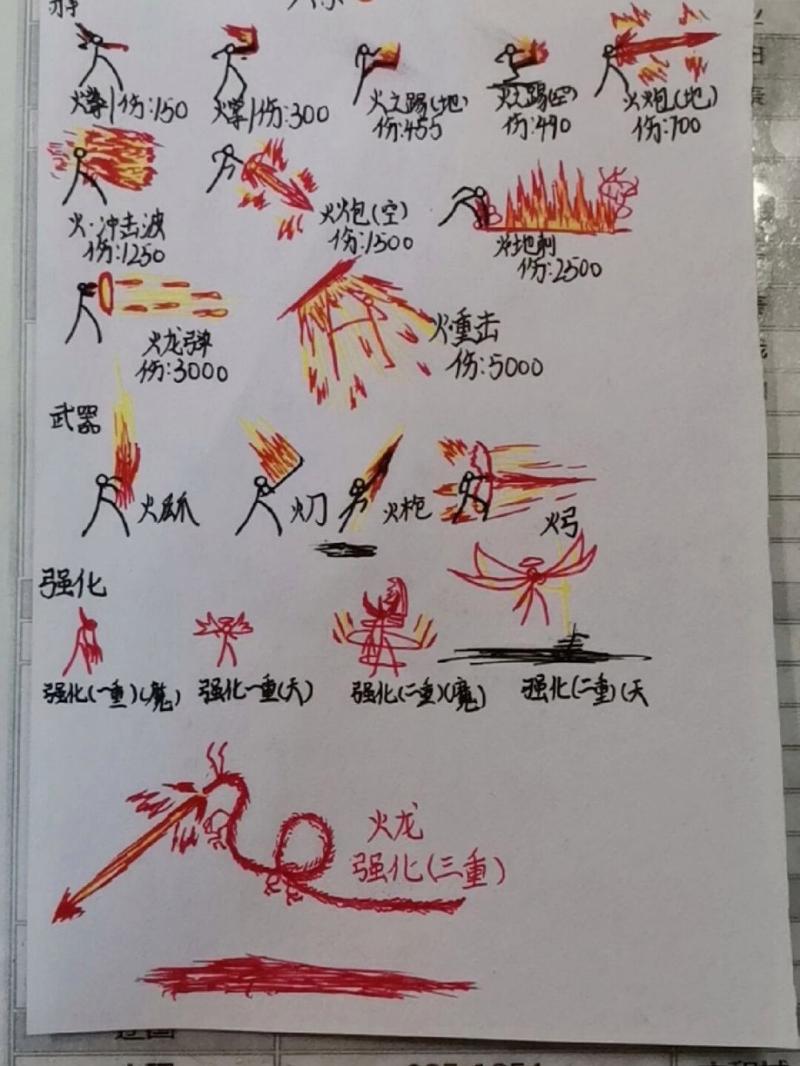 火掌 伤:150
火掌 伤:300
火之踢(地)
伤:455
火之踢(空)
伤:490
火炮(地)
伤:700
火·冲击波
伤:1250
火炮(空)
伤:1500
火地刺
伤:2500
火龙弹
伤:3000
火重击
伤:5000
武器
火爪
火刀
火枪
火弓
强化
强化(一重)(魔)
强化一重(天)
强化(二重)(魔)
强化(二重)(天
火龙
强化(三重)